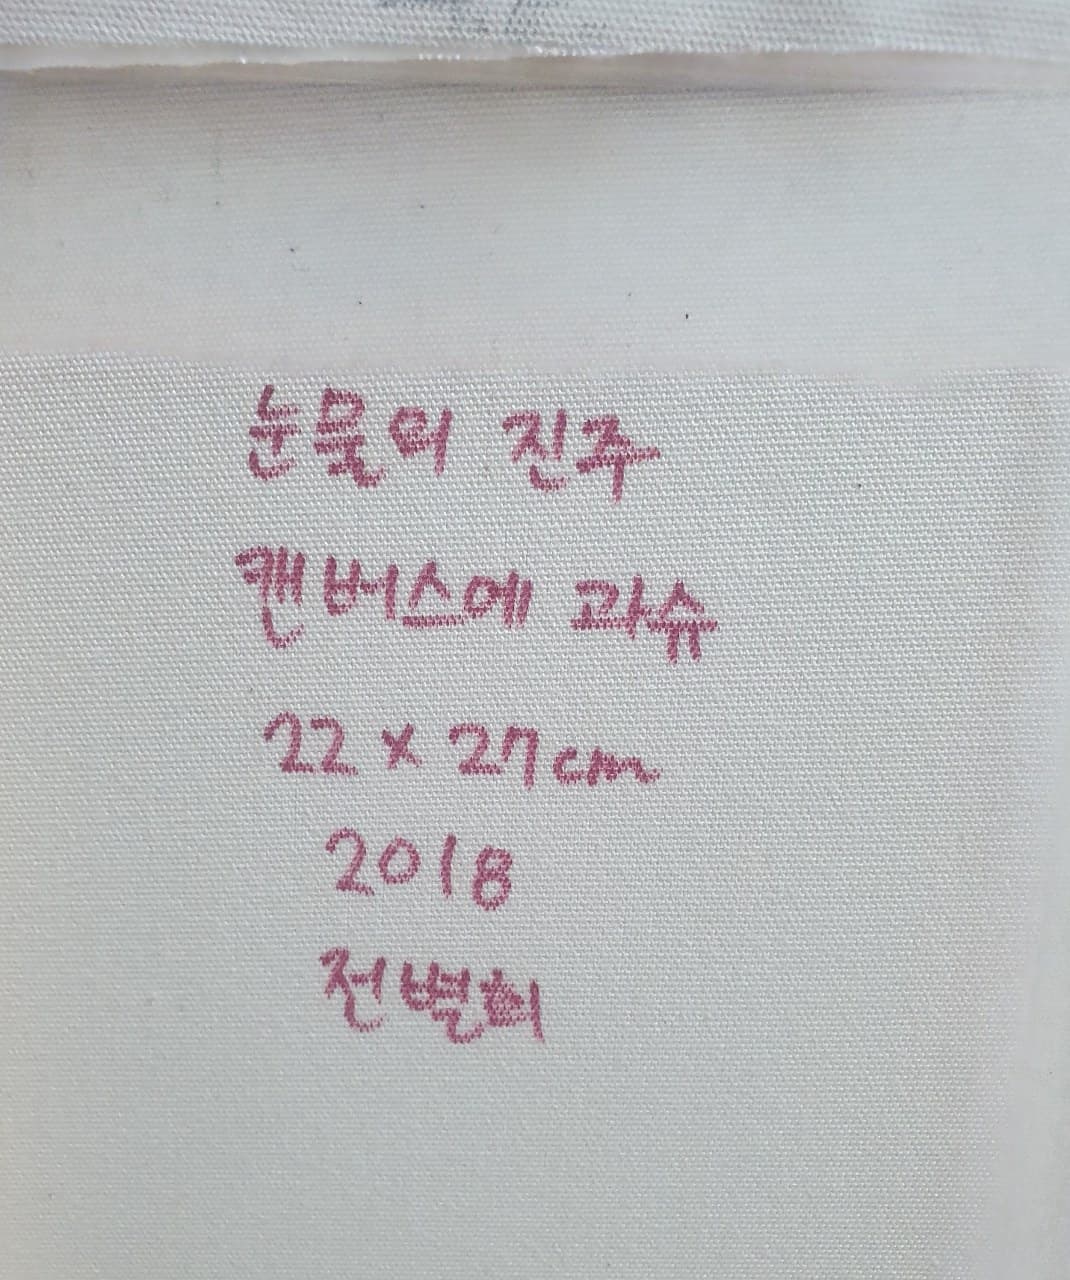 눈물의 진주
캔버스에 과슈
22 x 27cm
2018
전별희